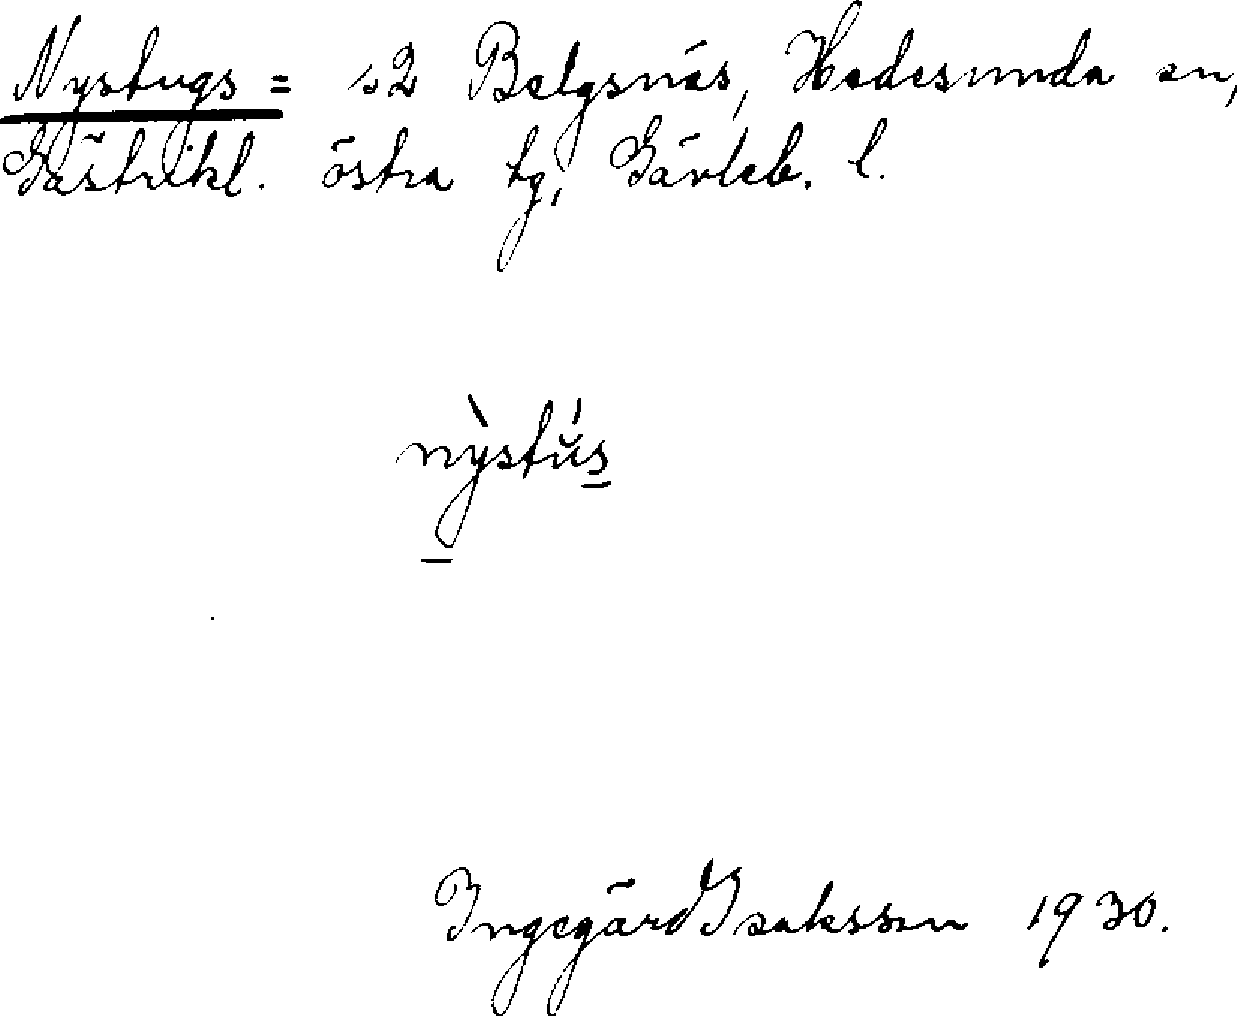 Nystugs= s2 Belgsnäs, Hedesunda sn,
Gästrikl. östra tg, Gävleb. l.
nỳstŭ́s
Ingegärd Isaksson 1930.